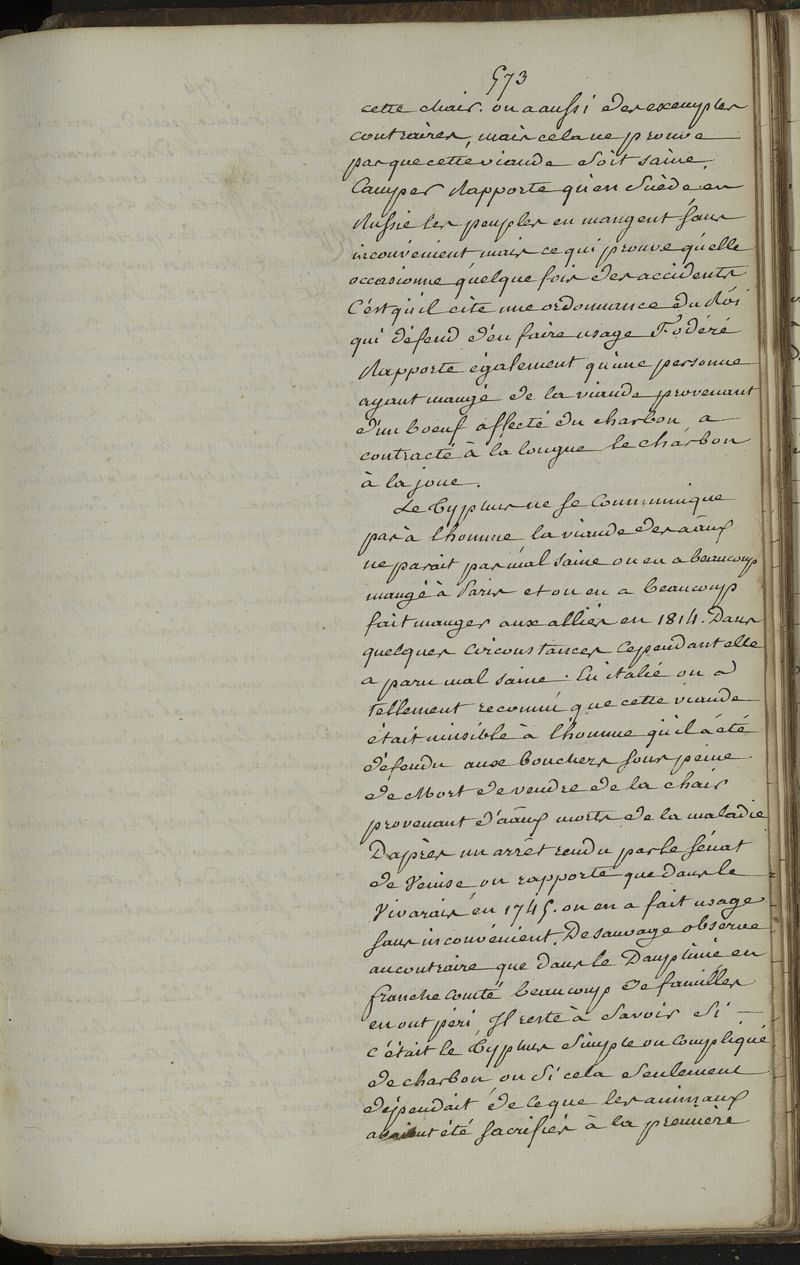 573
cette chair. on a aussi des exemples
contraires, mais cela ne prouve
pas que cette viande soit saine.
Camper Rapporte qu'en Suède en
Russie les peuples en mangent sans
inconvénient mais ce qui prouve qu'elle
occasionne quelque fois des accidents
C'est qu'il cite une ordonnance du Roi
qui défend d'en faire usage Fodéré
Rapporte également qu'une personne
ayant mangé de la viande provenant
d'un boeuf affecté du charbon a
contracté à la longue le charbon
à la joue.
Le Typhus ne se Communique
pas à l'homme la viande des aãux
ne parait pas mal saine on en a beaucoup
mangé à Paris et on en a beaucoup
fait manger aux alliés en 1814. Dans
quelques Circonstances Cependant elle
a paru mal saine. En italie on a
tellement reconnu que cette viande
était nuisible à l'homme qu'il a été
défendu aux bouchers sous peine
de Mort de vendre de la chair
provenant d'aãux morts de la maladie
D'après un arrêt rendu par le sénat
de Venise on rapporte que dans le
Vivarais en 1745. on en a fait usage
sans inconvénient. De sauvage observe
au contraire que dans le Dauphiné en
franche Comté beaucoup de familles
en ont péri Il reste à savoir si —
c'était le Typhus simple ou Compliqué
de charbon, ou si cela seulement
dépendait de ce que les animaux
avaient été sacrifiés à la première